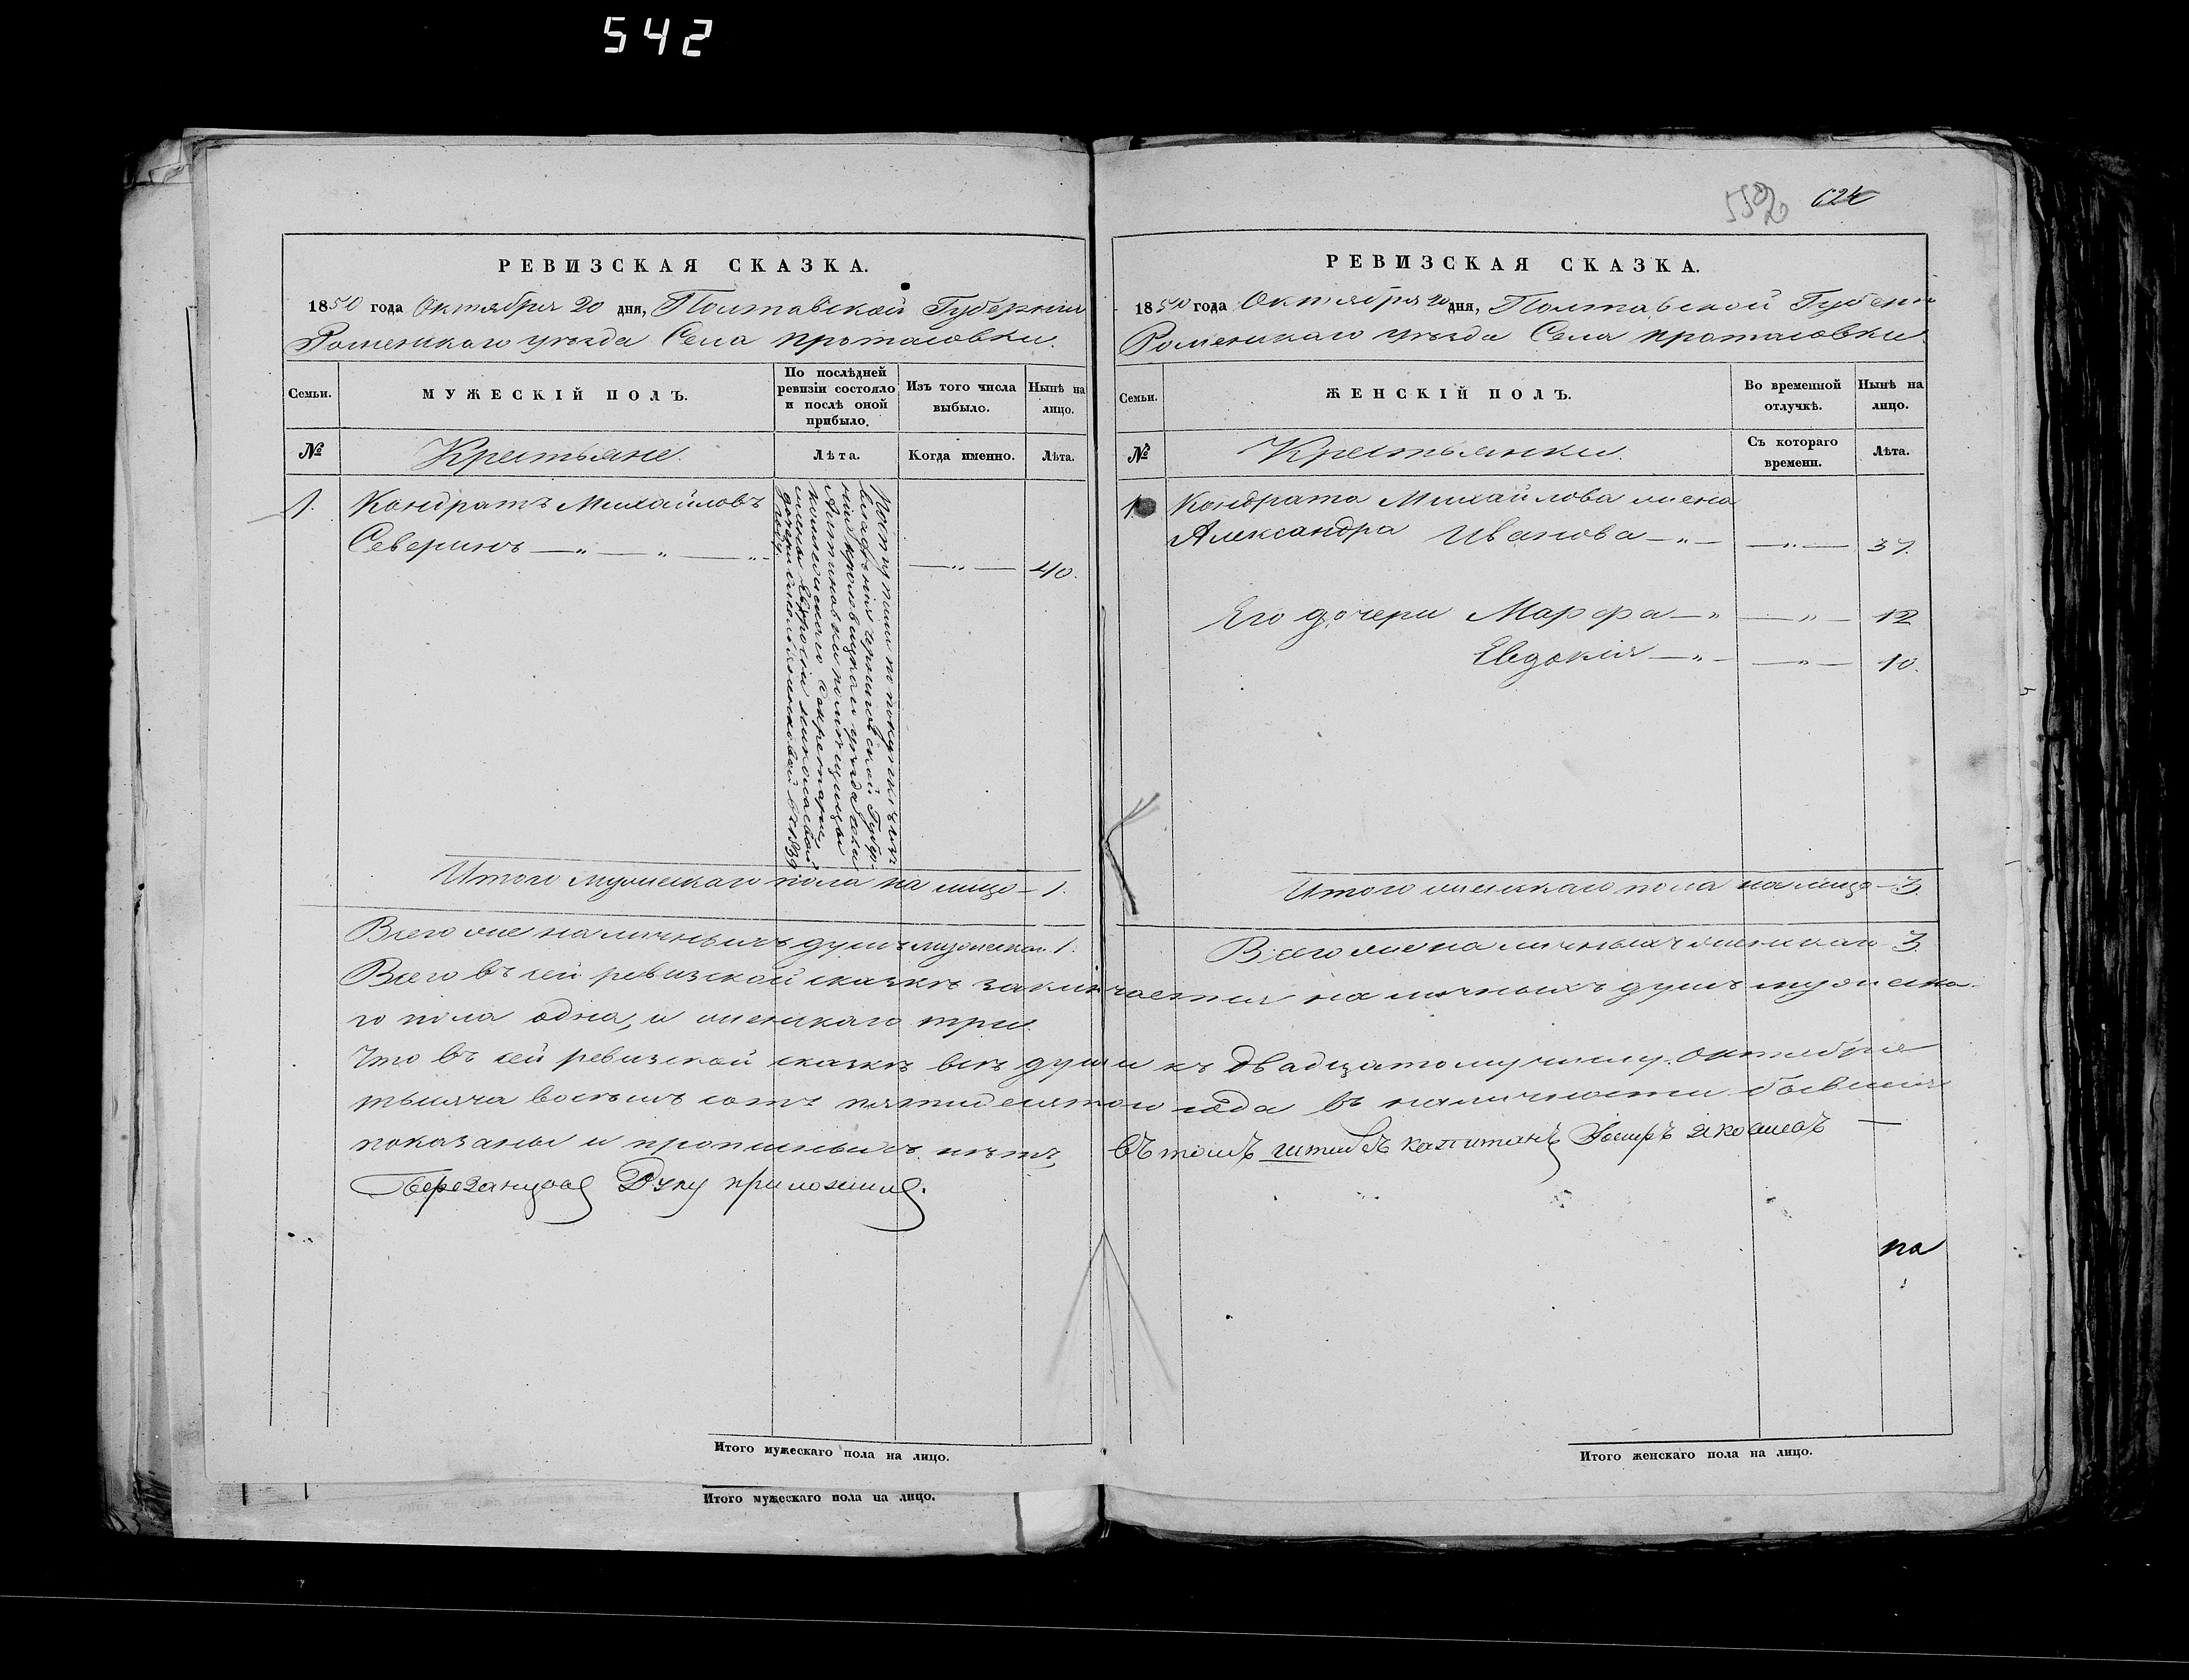 542
552 624
РЕВИЗСКАЯ СКАЗКА.
1850 года Октября 20 дня, Полтавской Губернии
Роменскаго уѣзда Села Протасовки.
Семьи.
МУЖЕСКІЙ ПОЛЪ.
По послѣдней ревизіи состояло и послѣ оной прибыло.
Изъ того числа выбыло.
Нынѣ на лицо.
№
Крестьяне.
Лѣта.
Когда именно.
Лѣта.
1. Кондратъ Михайловъ
Северинъ — „ — „ — „ — „ — 40.
Поступилъ по покупке
Черниговской Губер-
ніи Кролевецкаго уѣзда села
помѣщицы
Секретари
Николаевой
Итого мужескаго пола на лицо — 1.
Всего же наличныхъ душъ мужеска. 1.
РЕВИЗСКАЯ СКАЗКА.
1850 года Октября 20 дня, Полтавской Губерн
Роменскаго уѣзда Села Протасовки.
Семьи.
ЖЕНСКІЙ ПОЛЪ.
Во временной отлучкѣ.
Нынѣ на лицо.
№
Крестьянки.
Съ котораго времени.
Лѣта.
1. Кондрата Михайлова жена
Александра Иванова — „ — — „ — 37.
Его дочери Марфа — „ — „ — 12
Евдокія — „ — — „ — 10.
Итого женскаго пола на лицо — 3.
Всего же наличныхъ женскаго 3
Всего въ сей ревизской сказкѣ заключается наличныхъ душъ мужеска-
го пола одна, и женскаго три.
Что въ сей ревизской сказкѣ всѣ души къ двадцатому числу Октября
тысяча восемь сотъ пятидесятого года въ наличности бывшія
показаны и прописныхъ нѣтъ, въ томъ штабсъ капитанъ Яковлевъ —
Руку приложилъ.
на
Итого мужескаго пола на лицо.
Итого женскаго пола на лицо.
Итого мужескаго пола на лицо.